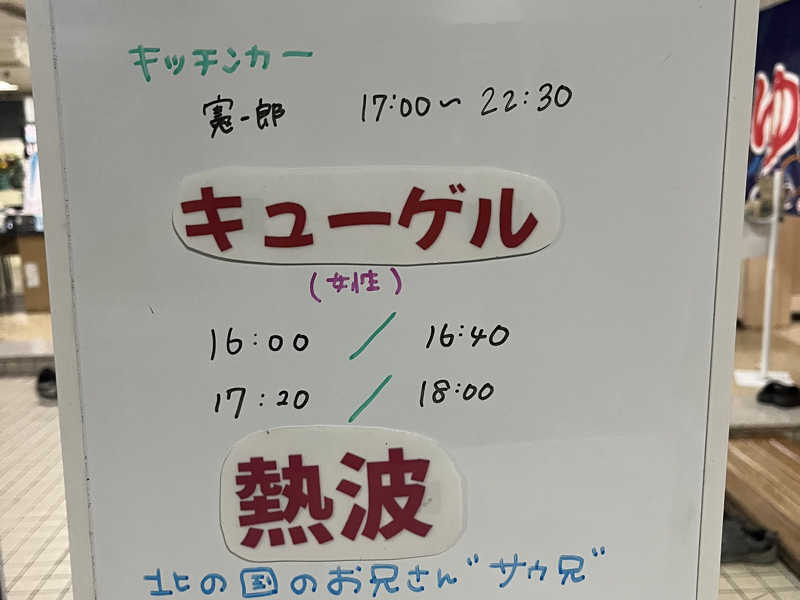 キッチンカー
憲一郎 17:00~22:30
キューゲル
(女性)
16:00 / 16:40
17:20 / 18:00
熱波
北の国のお兄さん"サウ兄"
ゆ